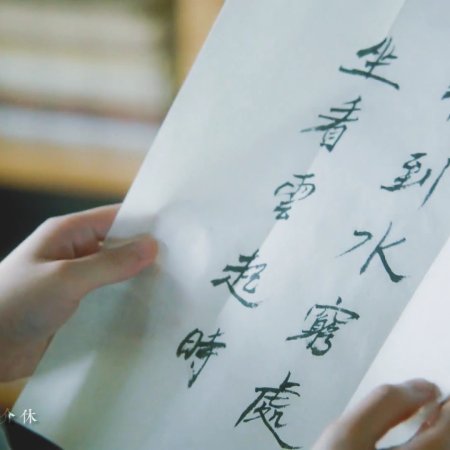 到水窮處
坐看雲起時
休